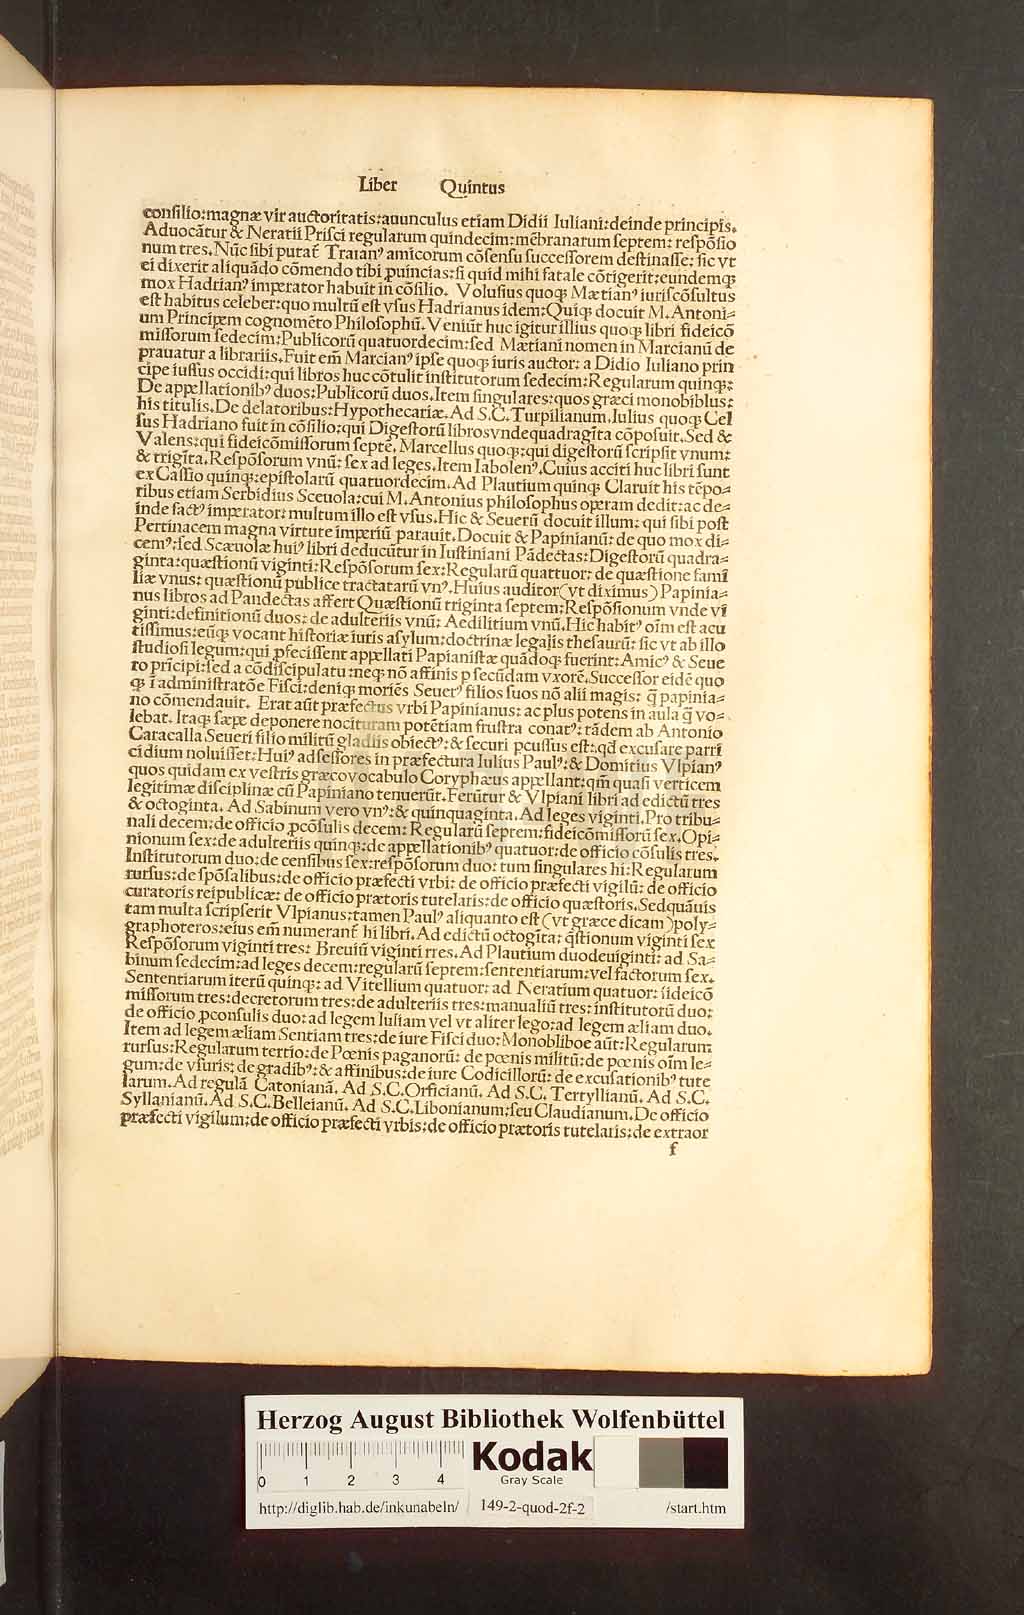 Liber Quintus
consilio:magnæ vir auctoritatis:auunculus etiam Didii Iuliani:deinde principis.
Aduocãtur & Neratii Prisci regularum quindecim:mẽbranarum septem: respõsio
num tres. Nũc sibi putat̃ Traianꝰ amicorum cõsensu successorem destinasse: sic vt
ei dixerit aliquãdo cõmendo tibi ꝓuincias:si quid mihi fatale cõtigerit:eundemqꝫ
mox Hadrianꝰ imperator habuit in cõsilio. Volusius quoqꝫ Mætianꝰ iuriscõsultus
est habitus celeber:quo multũ est vsus Hadrianus idem:Quiqꝫ docuit M.Antoni⸗
um Principem cognomẽto Philosophũ. Veniũt huc igitur illius quoqꝫ libri fideicõ
missorum sedecim:Publicorũ quatuordecim:sed Mætiani nomen in Marcianũ de
prauatur a librariis. Fuit em̃ Marcianꝰ ipse quoqꝫ iuris auctor: a Didio Iuliano prin
cipe iussus occidi:qui libros huc cõtulit institutorum sedecim:Regularum quinqꝫ:
De appellationibꝰ duos:Publicorũ duos.Item singulares:quos græci monobiblus:
his titulis.De delatoribus:Hypothecariæ.Ad S.C.Turpilianum.Iulius quoqꝫ Cel
sus Hadriano fuit in cõsilio:qui Digestorũ libros vndequadragĩta cõposuit.Sed &
Valens:qui fideicõmissorum septẽ. Marcellus quoqꝫ:qui digestorũ scripsit vnum:
& trigĩta.Respõsorum vnũ: sex ad leges.Item Iabolenꝰ.Cuius acciti huc libri sunt
ex Cassio quinqꝫ:epistolarũ quatuordecim.Ad Plautium quinqꝫ Claruit his tẽpo⸗
ribus etiam Serbidius Sceuola:cui M.Antonius philosophus operam dedit:ac de⸗
inde factꝰ imperator: multum illo est vsus.Hic & Seuerũ docuit illum: qui sibi post
Pertinacem magna virtute imperiũ parauit.Docuit & Papinianũ: de quo mox di⸗
cemꝰ:sed Scæuolæ huiꝰ libri deducũtur in Iustiniani Pãdectas:Digestorũ quadra⸗
ginta:quæstionũ viginti:Respõsorum sex:Regularũ quattuor: de quæstione famĩ
liæ vnus: quæstionũ publice tractatarũ vnꝰ.Huius auditor(vt diximus)Papinia⸗
nus libros ad Pandectas affert Quæstionũ triginta septem:Respõsionum vnde vĩ
ginti:definitionũ duos: de adulteriis vnũ: Aedilitium vnũ.Hic habitꝰ oĩm est acu
tissimus:eũqꝫ vocant historiæ iuris asylum:doctrinæ legalis thesaurũ: sic vt ab illo
studiosi legum:qui ꝓfecissent appellati Papianistæ quãdoqꝫ fuerint:Amicꝰ & Seue
ro prĩcipi:sed a cõdiscipulatu:neqꝫ nõ affinis ꝑ secũdam vxorẽ.Successor eidẽ quo
qꝫ ĩ administratõe Fisci:deniqꝫ moriẽs Seuerꝰ filios suos nõ alii magis: q̃ papinia⸗
no cõmendauit. Erat aũt præfectus vrbi Papinianus: ac plus potens in aula q̃ vo⸗
lebat. Itaqꝫ sæpe deponere nocituram potẽtiam frustra conatꝰ: tãdem ab Antonio
Caracalla Seueri filio militũ gladiis obiectꝰ:& securi ꝑcussus est:qd excusare parri
cidium noluisset:Huiꝰ adsessores in præfectura Iulius Paulꝰ:& Domitius Vlpianꝰ
quos quidam ex vestris græco vocabulo Coryphæus appellant:qm̃ quasi verticem
legitimæ disciplinæ cũ Papiniano tenuerũt.Ferũtur & Vlpiani libri ad edictũ tres
& octoginta. Ad Sabinum vero vnꝰ:& quinquaginta.Ad leges viginti.Pro tribu⸗
nali decem:de officio ꝓcõsulis decem: Regularũ septem:fideicõmissorũ sex.Opi⸗
nionum sex:de adulteriis quinqꝫ:de appellationibꝰ quatuor:de officio cõsulis tres.
Institutorum duo:de censibus sex:respõsorum duo: tum singulares hi:Regularum
rursus:de spõsalibus:de officio præfecti vrbi: de officio præfecti vigilũ: de officio
curatoris reipublicæ: de officio prætoris tutelaris:de officio quæstoris.Sedquãuis
tam multa scripserit Vlpianus:tamen Paulꝰ aliquanto est(vt græce dicam)poly⸗
graphoteros:eius em̃ numerant̃ hi libri.Ad edictũ octogĩta: q̃stionum viginti sex
Respõsorum viginti tres: Breuiũ viginti tres.Ad Plautium duodeuiginti: ad Sa⸗
binum sedecim:ad leges decem:regularũ septem:sententiarum:vel factorum sex.
Sententiarum iterũ quinqꝫ: ad Vitellium quatuor: ad Neratium quatuor: iideicõ
missorum tres:decretorum tres:de adulteriis tres:manualiũ tres: institutorũ duo:
de officio ꝓconsulis duo: ad legem Iuliam vel vt aliter lego:ad legem æliam duo.
Item ad legem æliam Sentiam tres:de iure Fisci duo:Monobliboe aũt:Regularum
rursus:Regularum tertio:de Pœnis paganorũ: de pœnis militũ:de pœnis oĩm le⸗
gum:de vsuris: de gradibꝰ:& affinibus:de iure Codicillorũ: de excusationibꝰ tute
larum.Ad regulã Catonianã. Ad S.C.Orficianũ. Ad S.C. Tertyllianũ. Ad S.C.
Syllanianũ.Ad S.C.Belleianũ. Ad S.C.Libonianum:seu Claudianum.De officio
præfecti vigilum:de officio præfecti vrbis:de officio prætoris tutelaris:de extraor
f
Herzog August Bibliothek Wolfenbüttel
0 1 2 3 4
Kodak
Gray Scale
http://diglib.hab.de/inkunabeln/ 149-2-quod-2f-2 /start.htm